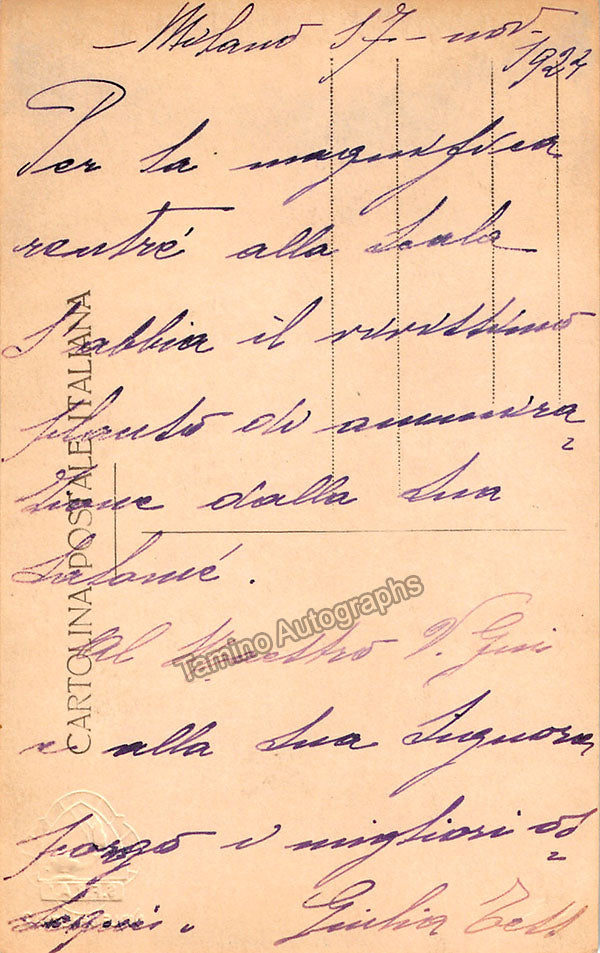 – Milano 17 – nov. –
1923
Per la magnifica
rentré alla Scala
S'abbia il vivissimo
plauso di ammira=
zione dalla Sua
Salomé.
Al Maestro V. Gui
e alla Sua Signora
porgo i migliori os=
sequi. Giulia Tess
CARTOLINA POSTALE ITALIANA
Tamino Autographs